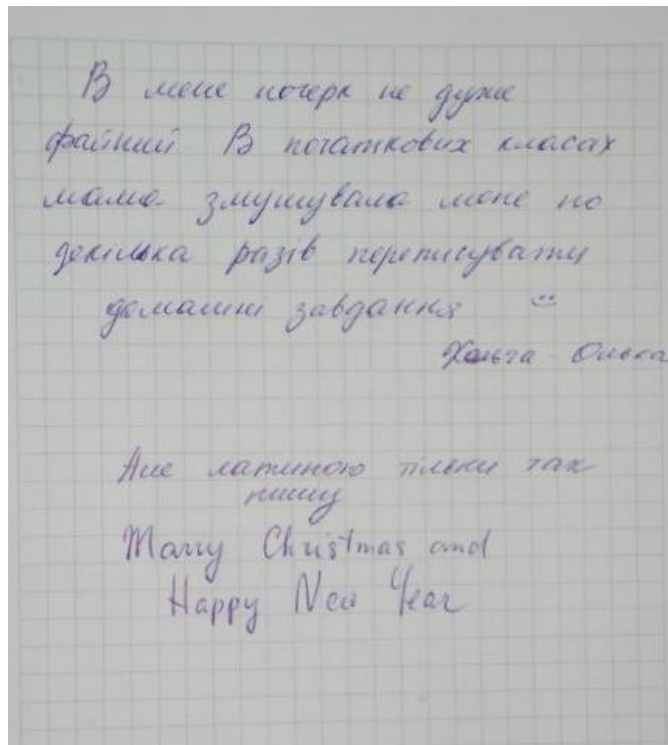 В мене почерк не дуже
файний В початкових класах
мама змушувала мене по
декілька разів переписувати
домашні завдання :)
Хельга - Олька
Але латиною тільки так
пишу
Marry Christmas and
Happy New Year